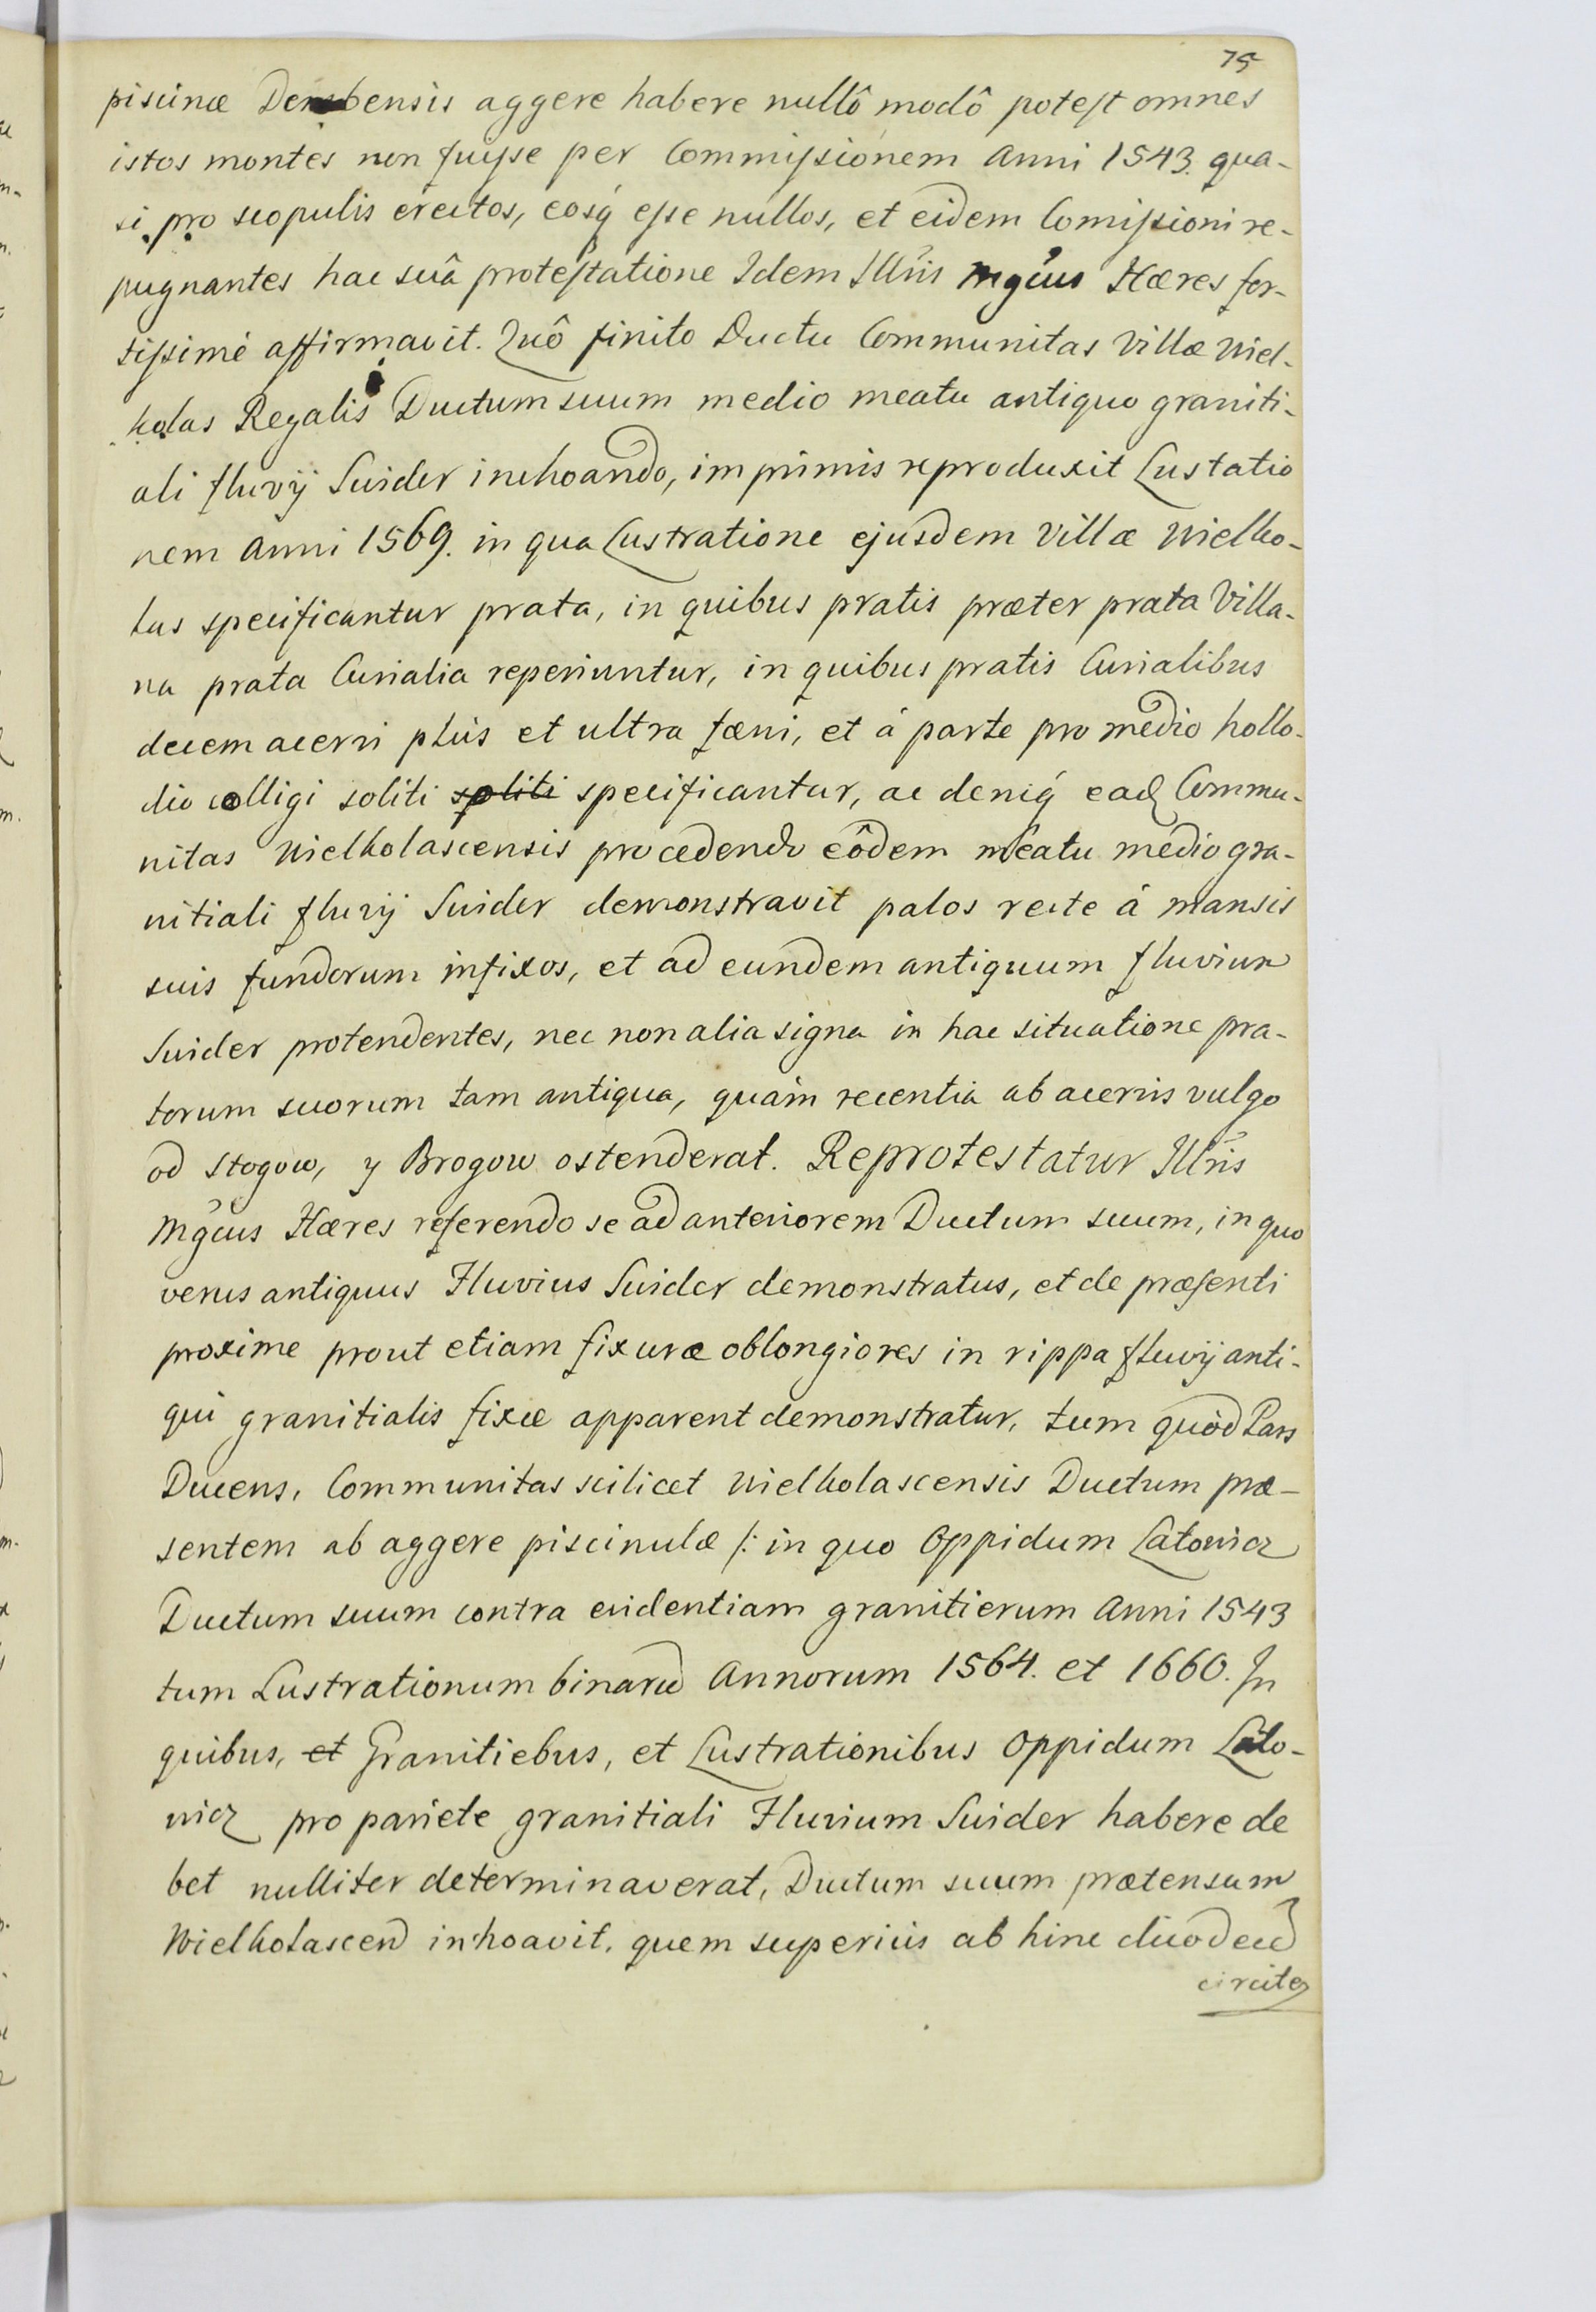 75
piscinæ Dembensis aggere habere nullô modô potest omnes
istos montes non fuisse per Commissionem Anni 1543. qua-
si pro scopulis erectos, eosq́ esse nullos, et eidem Comissioni re-
pugnantes hac suâ protestatione Idem Illris Mgcus Hæres for-
tissimé affirmavit. Quô finito Ductu Communitas Villæ Wiel-
holas Regalis Ductum suum medio meatu antiquo graniti-
ali fluvij Swider inchoando, imprimis reproduxit Lustatio
nem Anni 1569. in qua Lustratione ejusdem Villæ Wielho-
las specificantur prata, in quibus pratis præter prata Villa-
na prata Curialia reperiuntur, in quibus pratis Curialibus
decem acervi plus et ultra fæni, et á parte pro medio hollo-
dio colligi soliti soliti specificantur, ac deniq́ ead Commu-
nitas Wielholascensis procedendo eôdem meatu medio gra-
nitiali fluvij Swider demonstravit palos recte á mansis
suis fundorum infixos, et ad eundem antiquum fluvium
Swider protendentes, nec non alia signa in hac situatione pra-
torum suorum tam antiqua, quám recentia ab acervis vulgo
od Stogow, y Brogow ostenderat. Reprotestatur Illris
Mgcus Hæres referendo se ad anteriorem Ductum suum, in quo
verus antiquus Fluvius Swider demonstratus, et de præsenti
proxime prout etiam fixuræ oblongiores in rippa fluvij anti-
qui granitialis fixæ apparent demonstratur, tum quòd Pars
Ducens, Communitas scilicet Wielholascensis Ductum præ-
sentem ab aggere piscinulæ /: in quo Oppidum Latowicz
Ductum suum contra evidentiam granitierum Anni 1543
tum Lustrationum binarum Annorum 1564. et 1660. In
quibus, et Granitiebus, et Lustrationibus Oppidum Lato-
wicz pro pariete granitiali Fluvium Swider habere de
bet nulliter determinaverat, Ductum suum prætensum
Wielholascen inhoavit, quem superiùs ab hinc duodecim
circiter